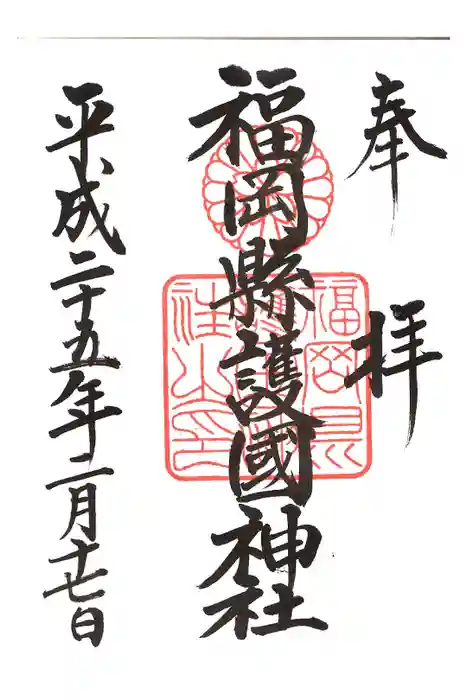 奉拝
福岡縣護國神社
平成二十五年二月十七日